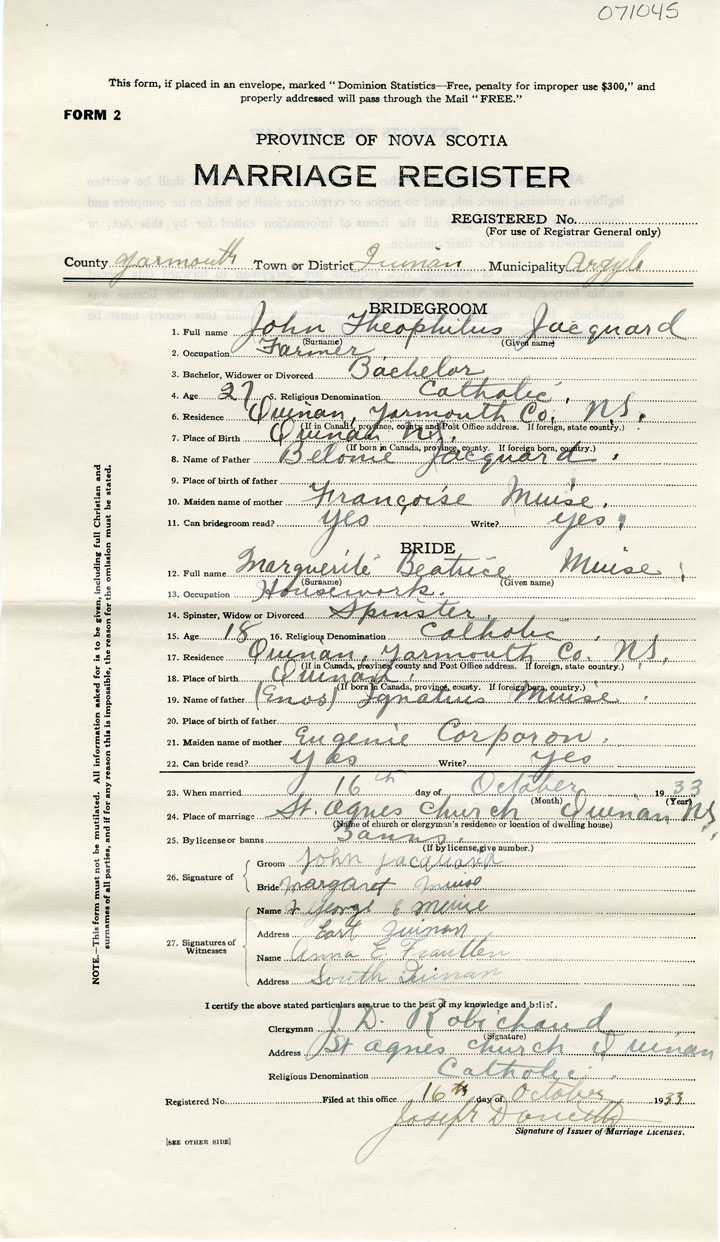 071045
This form, if placed in an envelope, marked "Dominion Statistics—Free, penalty for improper use $300," and
properly addressed will pass through the Mail "FREE."
FORM 2
PROVINCE OF NOVA SCOTIA
MARRIAGE REGISTER
REGISTERED No.
(For use of Registrar General only)
County Yarmouth Town or District Quinan Municipality Argyle
BRIDEGROOM
1. Full name John Theophilus Jacquard
(Surname) (Given name)
2. Occupation Farmer
3. Bachelor, Widower or Divorced Bachelor
4. Age 27 5. Religious Denomination Catholic.
6. Residence Quinan, Yarmouth Co. N.S.
(If in Canada, province, county and Post Office address. If foreign, state country.)
7. Place of Birth Quinan N.S.
(If born in Canada, province, county. If foreign born, country.)
8. Name of Father Belonie Jacquard.
9. Place of birth of father
10. Maiden name of mother Françoise Muise.
11. Can bridegroom read? yes Write? yes
BRIDE
12. Full name Marguerite Beatrice Muise
(Surname) (Given name)
13. Occupation Housework.
14. Spinster, Widow or Divorced Spinster.
15. Age 18 16. Religious Denomination Catholic.
17. Residence Quinan, Yarmouth Co. N.S.
(If in Canada, province, county and Post Office address. If foreign, state country.)
18. Place of birth Quinan.
(If born in Canada, province, county. If foreign born, country.)
19. Name of father (Enos) Ignatius Muise.
20. Place of birth of father
21. Maiden name of mother Eugenie Corporon.
22. Can bride read? yes Write? yes
23. When married 16th day of October 1933
(Month) (Year)
24. Place of marriage St. Agnes church Quinan N.S.
(Name of church or clergyman's residence or location of dwelling house)
25. By license or banns Banns.
(If by license, give number.)
26. Signature of
Groom John Jacquard
Bride Margaret Muise
27. Signatures of Witnesses
Name George E Muise
Address East Quinan
Name Anna E.
Address South Quinan
I certify the above stated particulars are true to the best of my knowledge and belief.
Clergyman J. D. Robichaud
(Signature)
Address St Agnes church Quinan
Religious Denomination Catholic.
Registered No. Filed at this office 16th day of October 1933
Joseph
Signature of Issuer of Marriage Licenses.
[SEE OTHER SIDE]
NOTE.—This form must not be mutilated. All information asked for is to be given, including full Christian and
surnames of all parties, and if for any reason this is impossible, the reason for the omission must be stated.